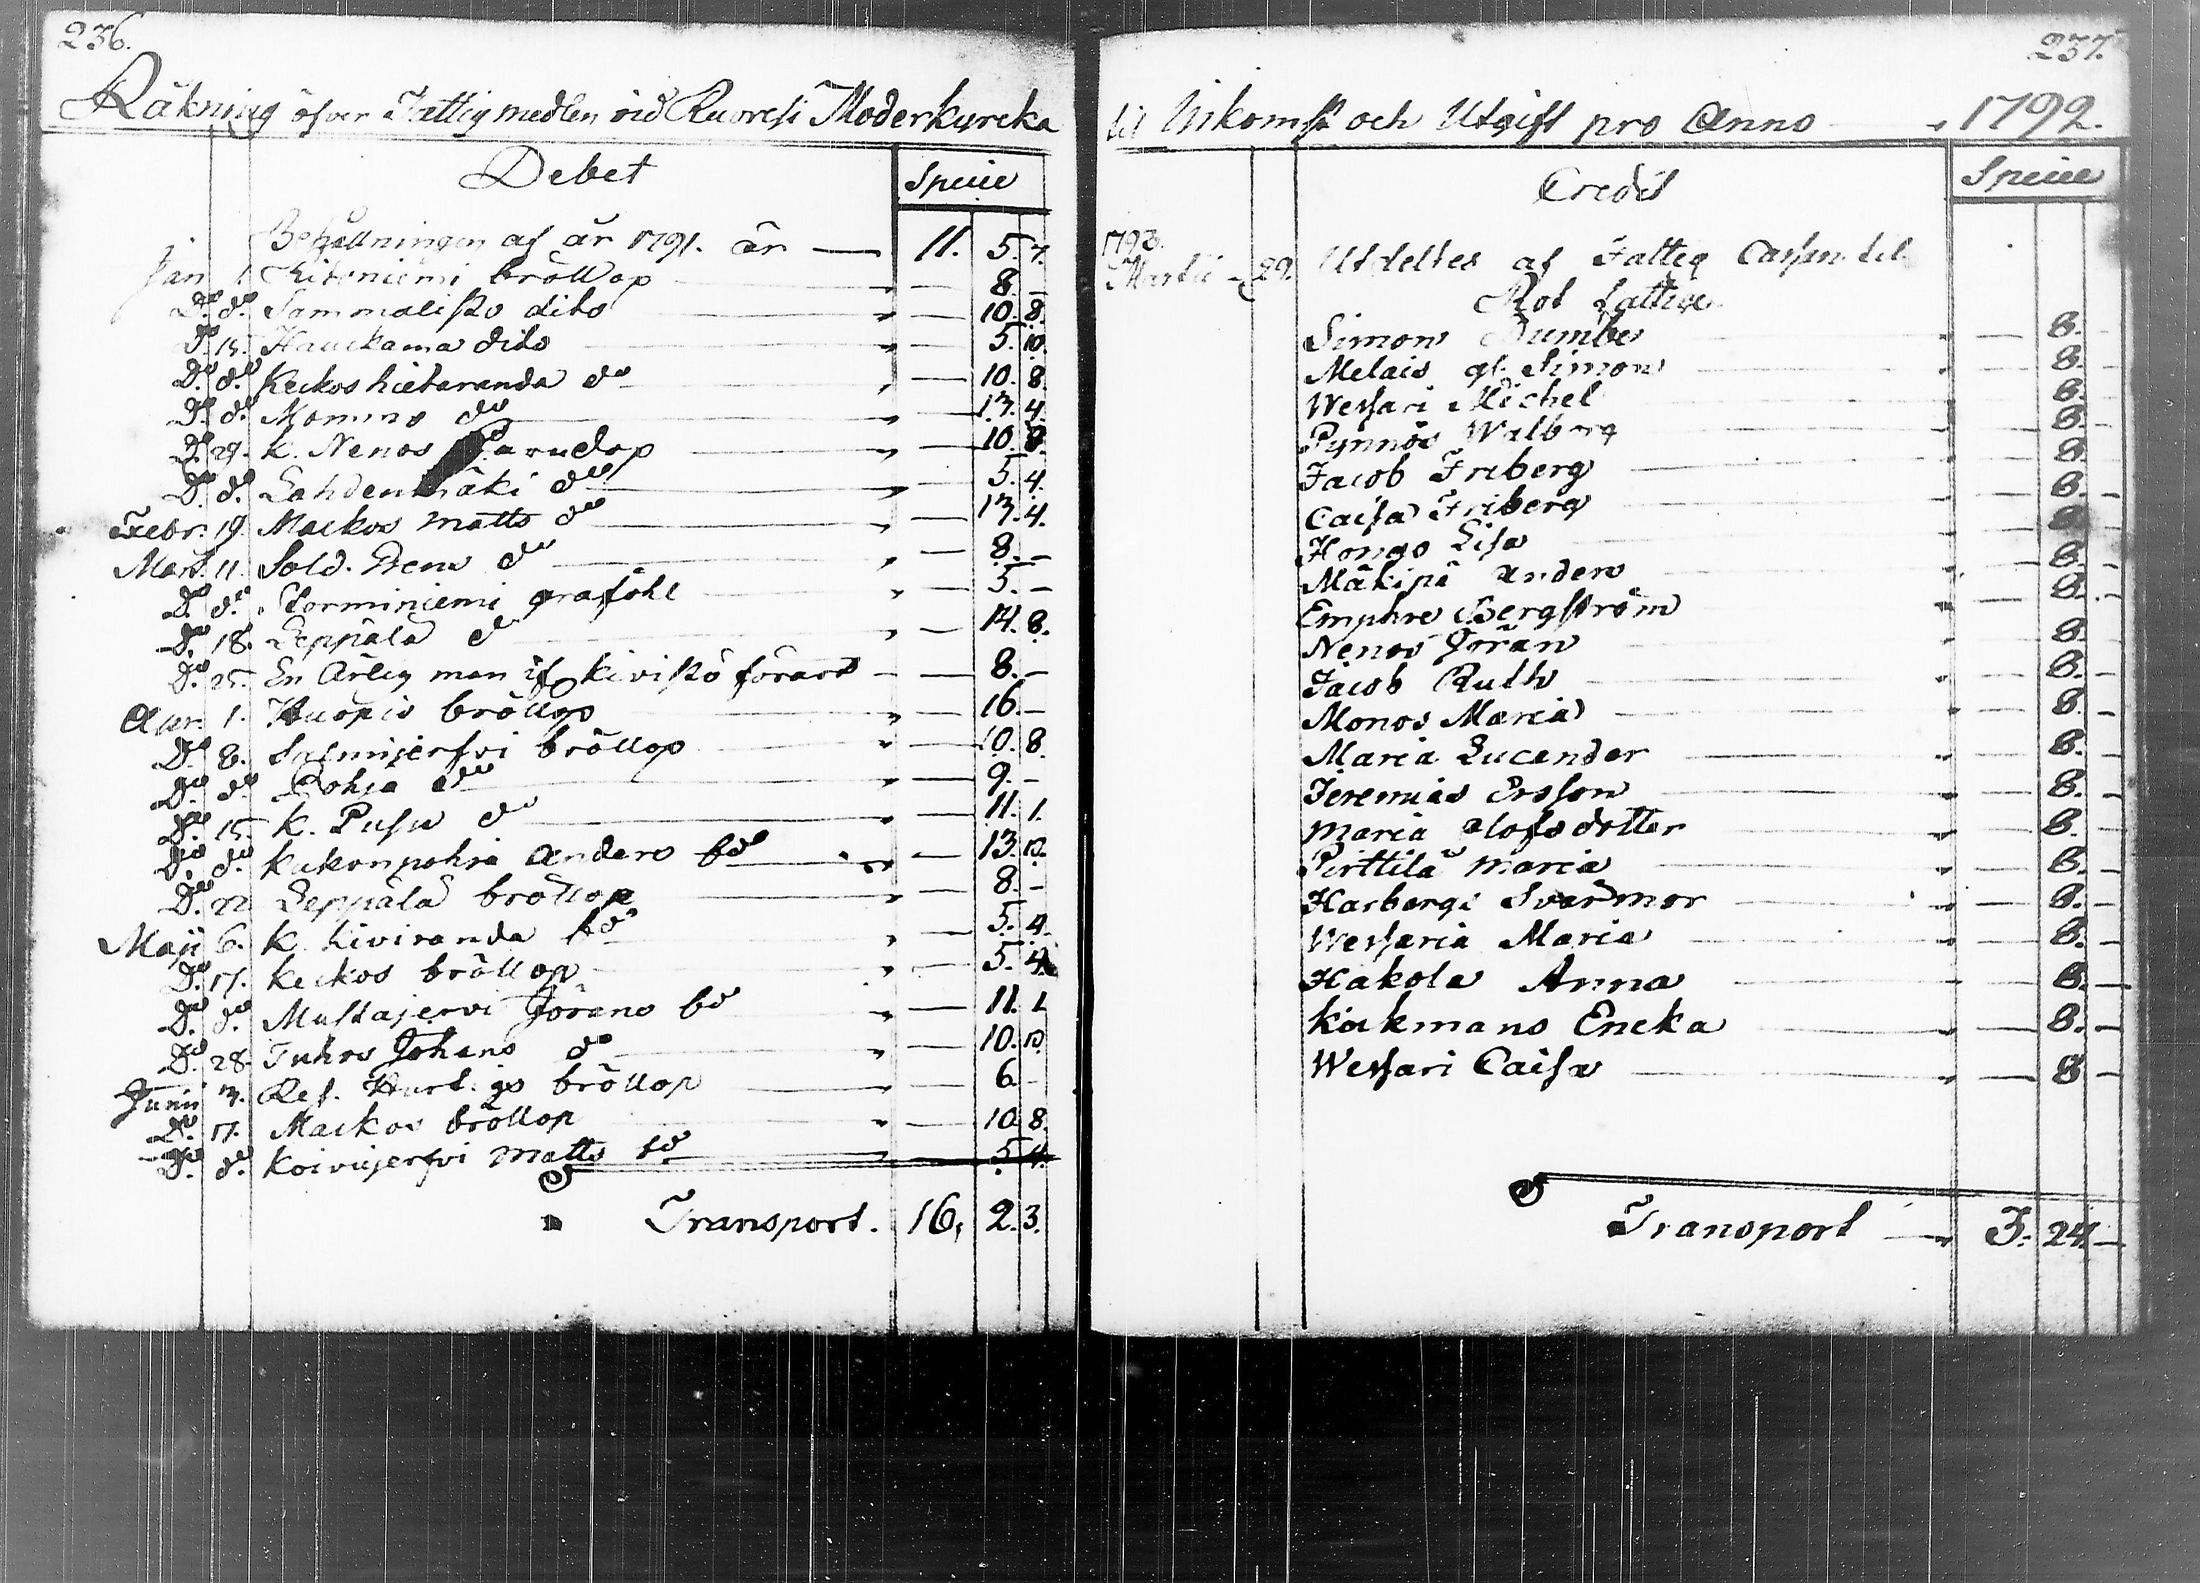 236.
Räkning öfver Fattigmedlen vid Ruovesi Moderkyrcka
Debet Specie
Behållningen af år 1791. är — 11. 5. 7.
Jan 1. bröllop — 8. —
Do do Sammalisto dito — 10. 8.
Do 15. Hauckama dito — 5. 10.
Do do Keckos hietaranda do — 10. 8.
Do do Mommo do — 13. 4.
Do 29. K. Nenos — 10. 8.
Do do Lahdenmäki do — 5. 4.
Febr. 19. Mackos Matts do — 13. 4.
Mart. 11. Sold. do — 8. —
Do do Storminiemi graföhl — 5. —
Do 18. Leppälä do — 14. 8.
Do 25. En Ärlig man af Kivistö förärt — 8. —
Apr. 1. Kuopio bröllop — 16. —
Do 8. Salmijerfvi bröllop — 10. 8.
Do do Pohja do — 9. —
Do 15. K. Pusu do — 11. 1.
Do do Kukonpohja Anders bd — 13. 10.
Do 22 Leppälä bröllop — 8. —
Maji 6. K. hiviranda bd — 5. 4.
Do 17. Keckos bröllop — 5. 4.
Do do Mustajervi Jörans bd — 11. 1.
Do 28. Tuhos Johans do — 10. 10.
Junii 3. Ref. Hurtigs bröllop — 6. —
Do 17. Mackos bröllop — 10. 8.
Do do Koivujerfvi Matts bd — 5. 4.
Transport. 16. 2. 3.
237.
til Inkomst och Utgift pro Anno 1792.
Credit Specie
1793.
Martii 29. Utdeltes af Fattig Cassan til
Rot fattige
Simon Dumbe — 8. —
Melais gl. Simon — 8. —
Wessari Michel — 8. —
Pynnös Walborg — 8. —
Jacob Friberg — 8. —
Caisa Friberg — 8. —
Hongo Lisa — 8. —
Mäkipä Anders — 8. —
Emphre Bergström — 8. —
Nenos Jöran — 8. —
Jacob Ruth — 8. —
Monos Maria — 8. —
Maria Lucander — 8. —
Jeremias Ersson — 8. —
Maria Olofsdotter — 8. —
Pirttilä Maria — 8. —
Harbergs Svärmor — 8. —
Wessaria Maria — 8. —
Hakola Anna — 8. —
Kiekmans Encka — 8. —
Wessari Caisa — 8 —
Transport — 3. 24. —